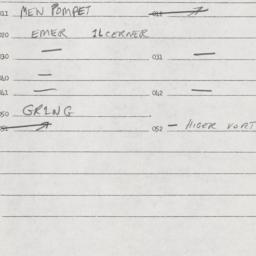 011 MEN POMPET 
020 EMER 1LCERNER
030 — 031 —
040 —
041 — 042 —
050 GR1NG
052 — HIGER VORT